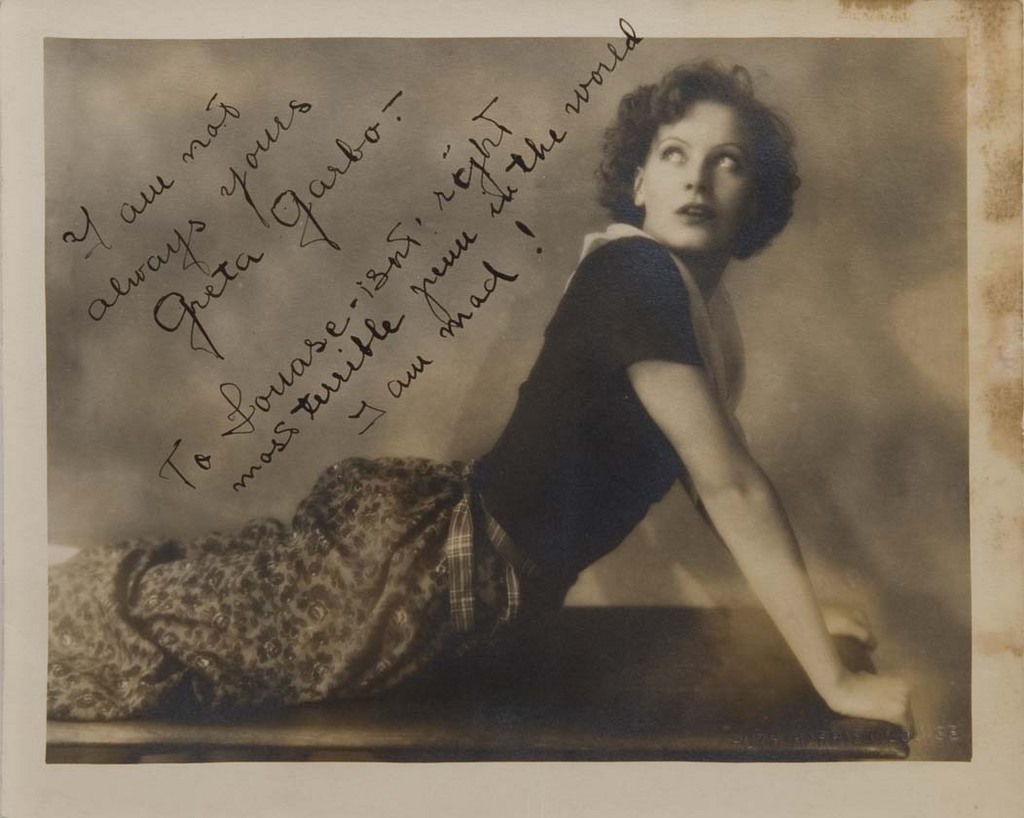 I am not
always yours
Greta Garbo-
To Louase-isnt, right
most terrible penn in the world
I am mad!